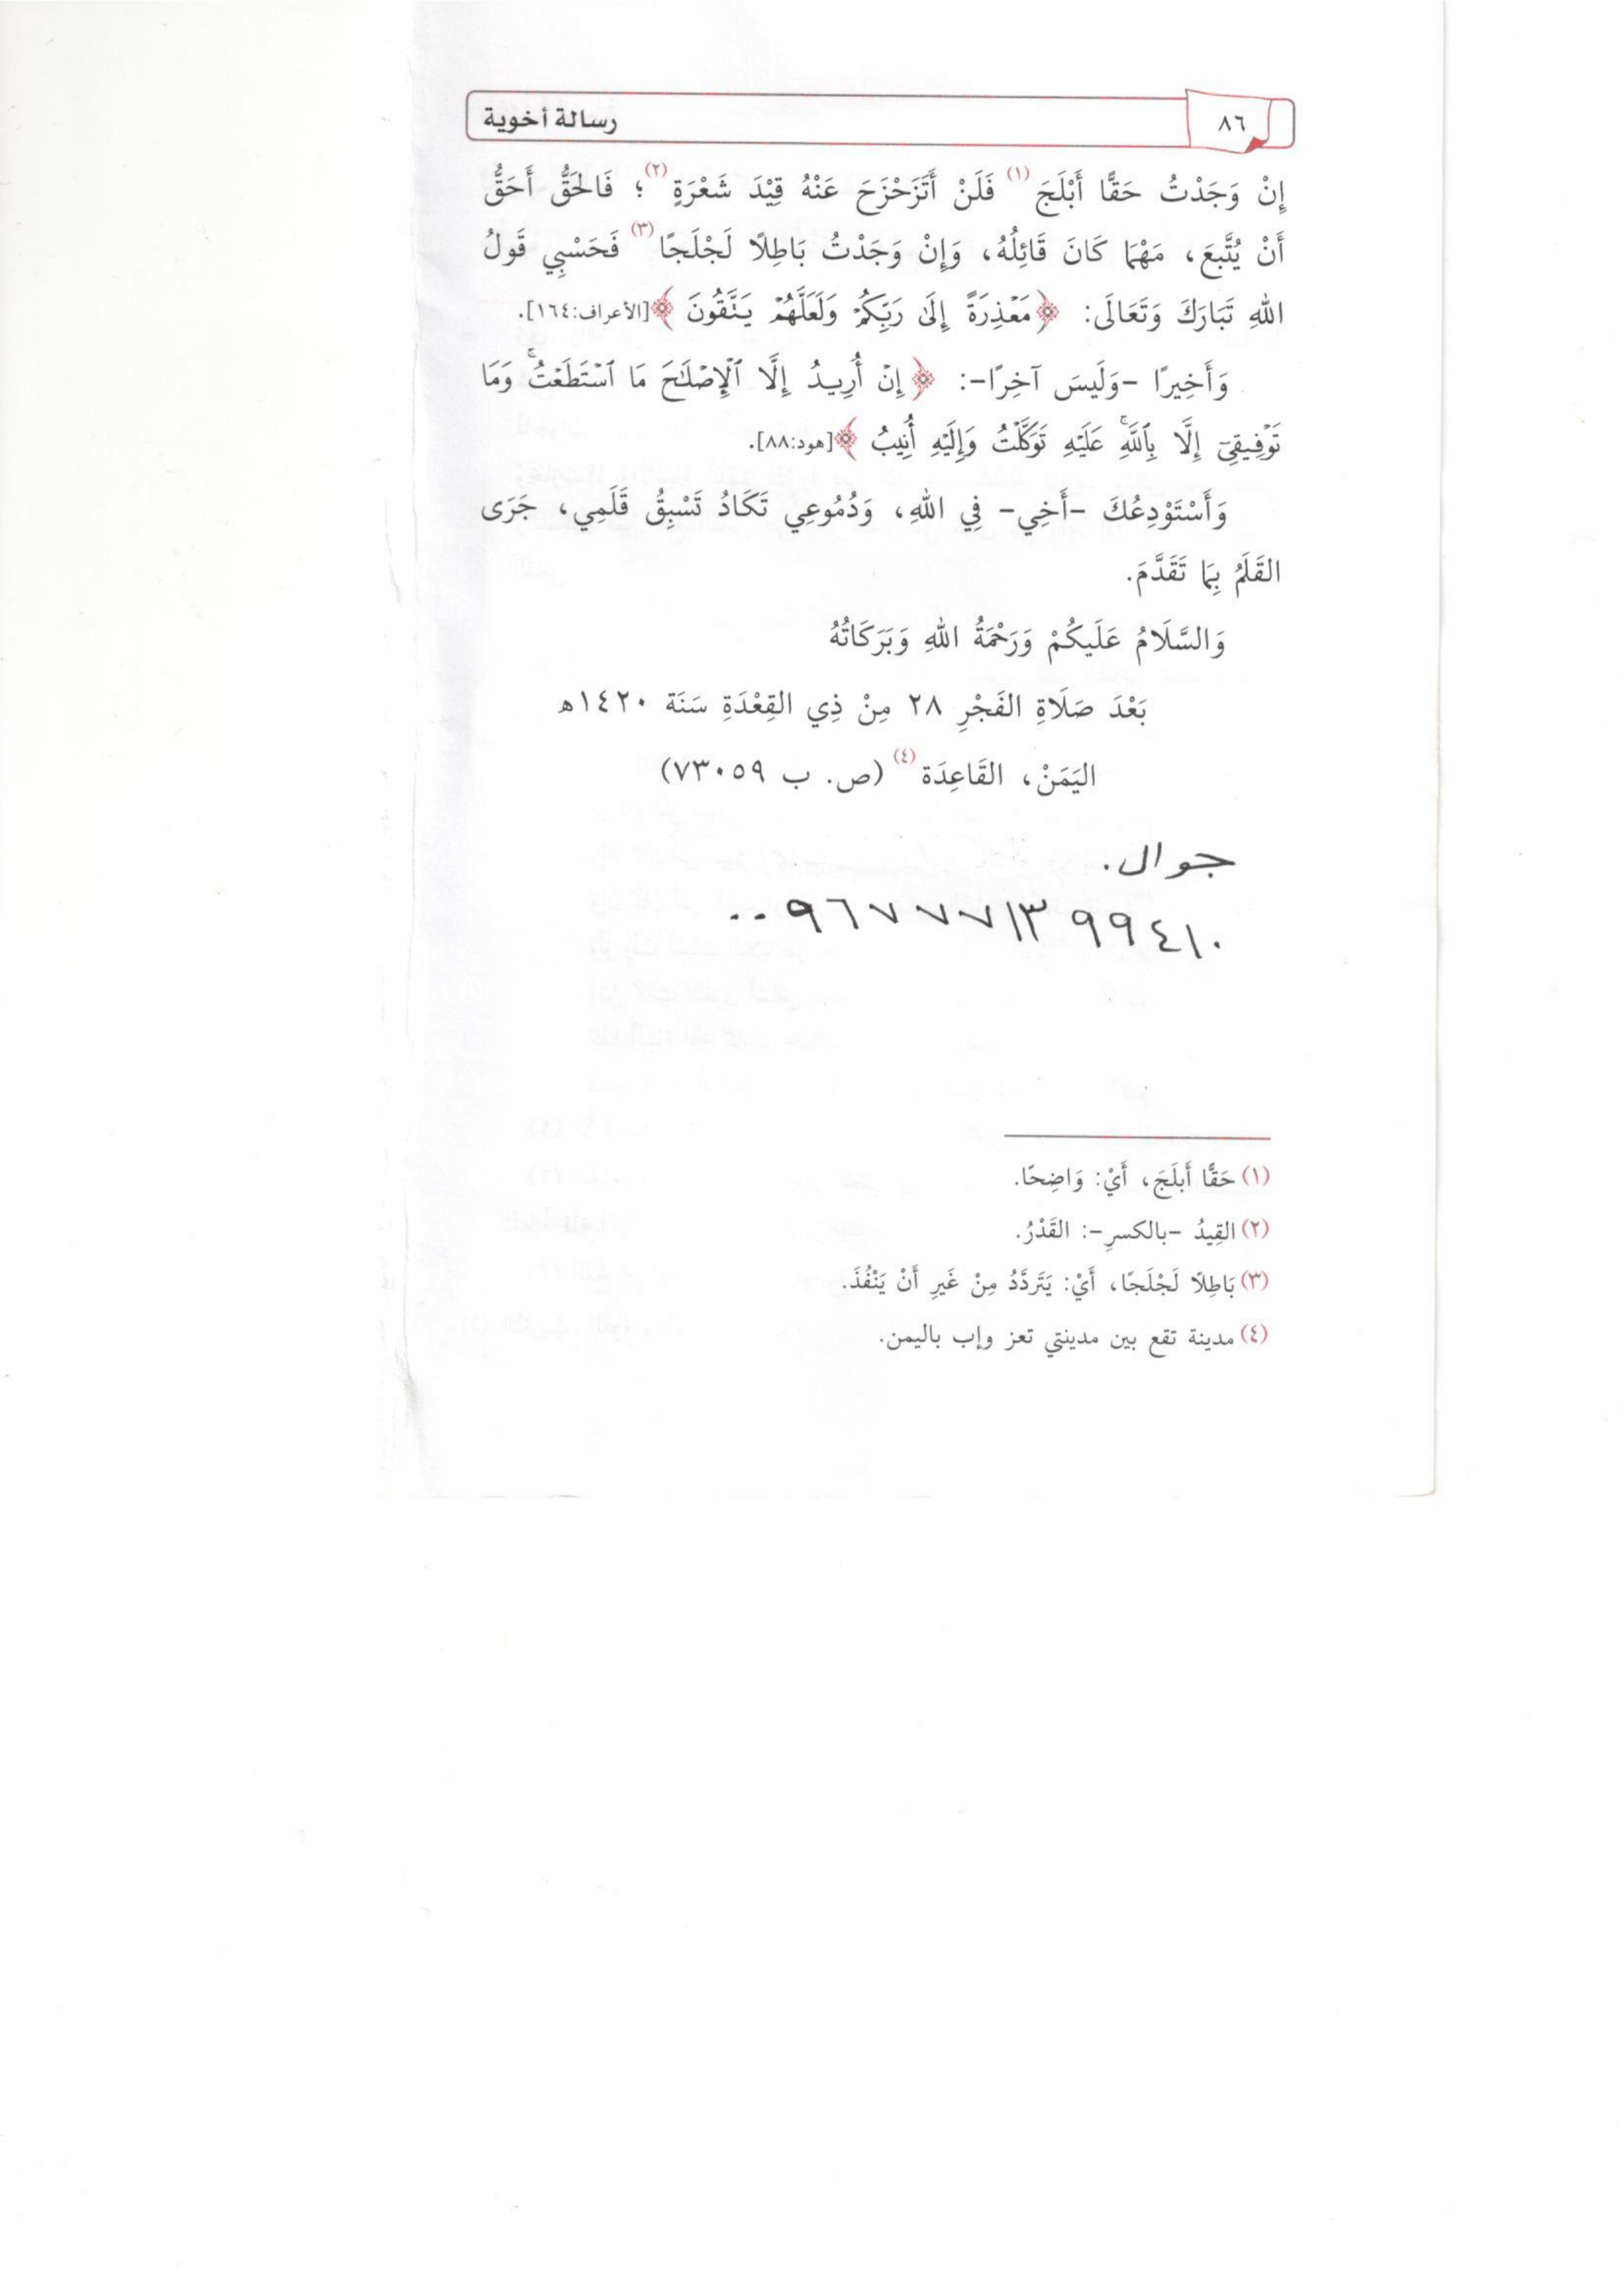 ٨٦ رسالة أخوية
إِنْ وَجَدْتُ حَقًّا أَبْلَجَ (١) فَلَنْ أَتَزَحْزَحَ عَنْهُ قِيْدَ شَعْرَةٍ (٢)؛ فَالحَقُّ أَحَقُّ
أَنْ يُتَّبَعَ، مَهْمَا كَانَ قَائِلُهُ، وَإِنْ وَجَدْتُ بَاطِلًا لَجْلَجًا (٣) فَحَسْبِي قَولُ
اللهِ تَبَارَكَ وَتَعَالَى: ﴿مَعْذِرَةً إِلَىٰ رَبِّكُمْ وَلَعَلَّهُمْ يَتَّقُونَ﴾ [الأعراف:١٦٤].
وَأَخِيرًا -وَلَيسَ آخِرًا-: ﴿إِنْ أُرِيدُ إِلَّا ٱلْإِصْلَٰحَ مَا ٱسْتَطَعْتُ ۚ وَمَا
تَوْفِيقِىٓ إِلَّا بِٱللَّهِ ۚ عَلَيْهِ تَوَكَّلْتُ وَإِلَيْهِ أُنِيبُ﴾ [هود:٨٨].
وَأَسْتَوْدِعُكَ -أَخِي- فِي اللهِ، وَدُمُوعِي تَكَادُ تَسْبِقُ قَلَمِي، جَرَى
القَلَمُ بِمَا تَقَدَّمَ.
وَالسَّلَامُ عَلَيكُمْ وَرَحْمَةُ اللهِ وَبَرَكَاتُهُ
بَعْدَ صَلَاةِ الفَجْرِ ٢٨ مِنْ ذِي القِعْدَةِ سَنَة ١٤٢٠هـ
اليَمَنْ، القَاعِدَة (٤) (ص. ب ٧٣٠٥٩)
جوال.
٠٠٩٦٧٧٧١٣٩٩٤١٠
(١) حَقًّا أَبلَجَ، أَيْ: وَاضِحًا.
(٢) القِيدُ -بالكسرِ-: القَدْرُ.
(٣) بَاطِلًا لَجْلَجًا، أَيْ: يَتَرَدَّدُ مِنْ غَيرِ أَنْ يَنْفُذَ.
(٤) مدينة تقع بين مدينتي تعز وإب باليمن.